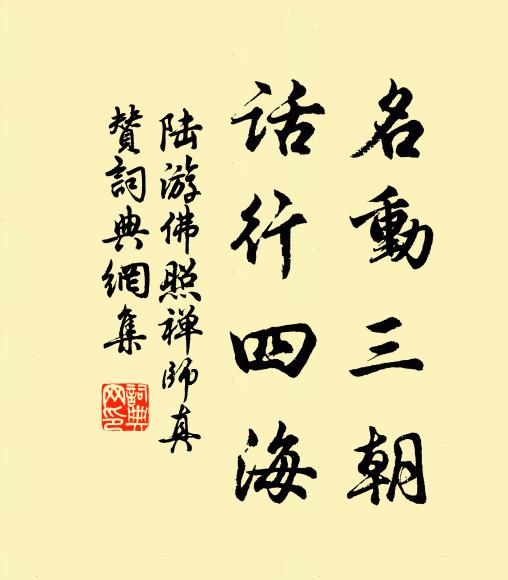 名動三朝
话行四海
陆游佛照禅师真
赞詞典網集
詞典网印